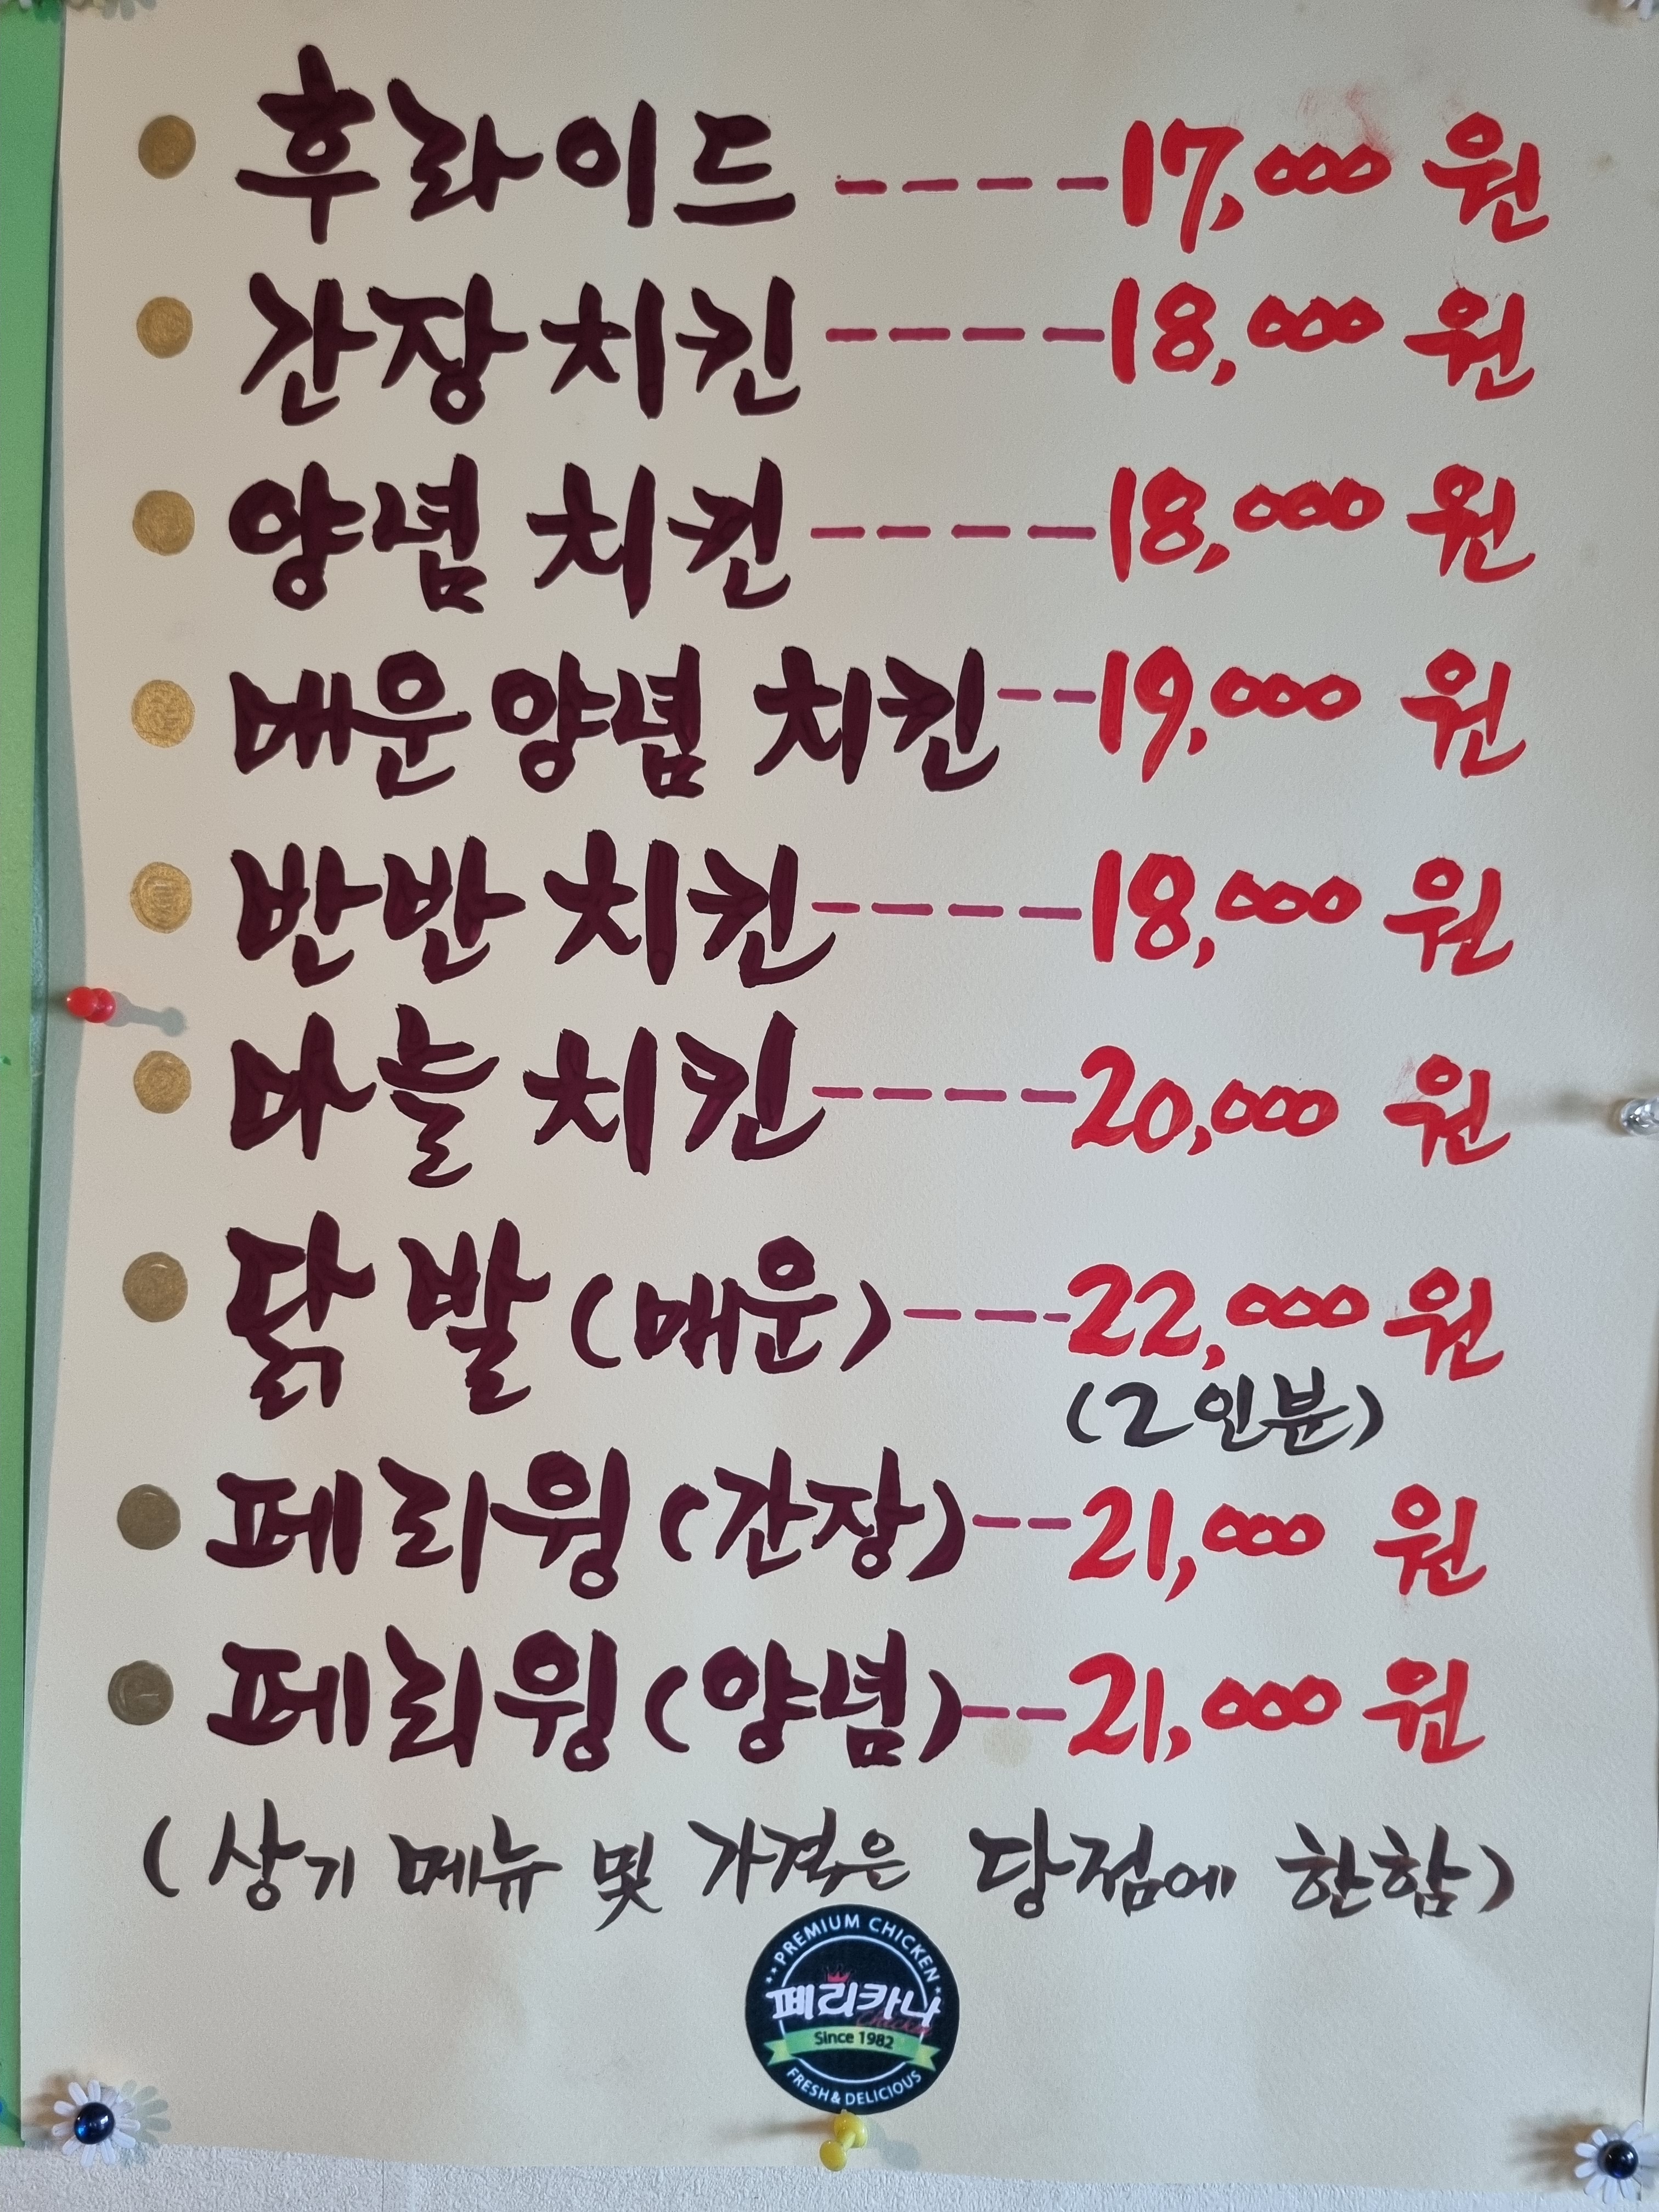 후라이드 ---- 17,000 원
간장 치킨 ---- 18,000 원
양념 치킨 ---- 18,000 원
매운 양념 치킨 -- 19,000 원
반반 치킨 ---- 18,000 원
마늘 치킨 ---- 20,000 원
닭발 (매운) --- 22,000 원
(2인분)
페리윙 (간장) -- 21,000 원
페리윙 (양념) -- 21,000 원
(상기 메뉴 및 가격은 당점에 한함)
PREMIUM CHICKEN
페리카나
Chicken
Since 1982
FRESH & DELICIOUS